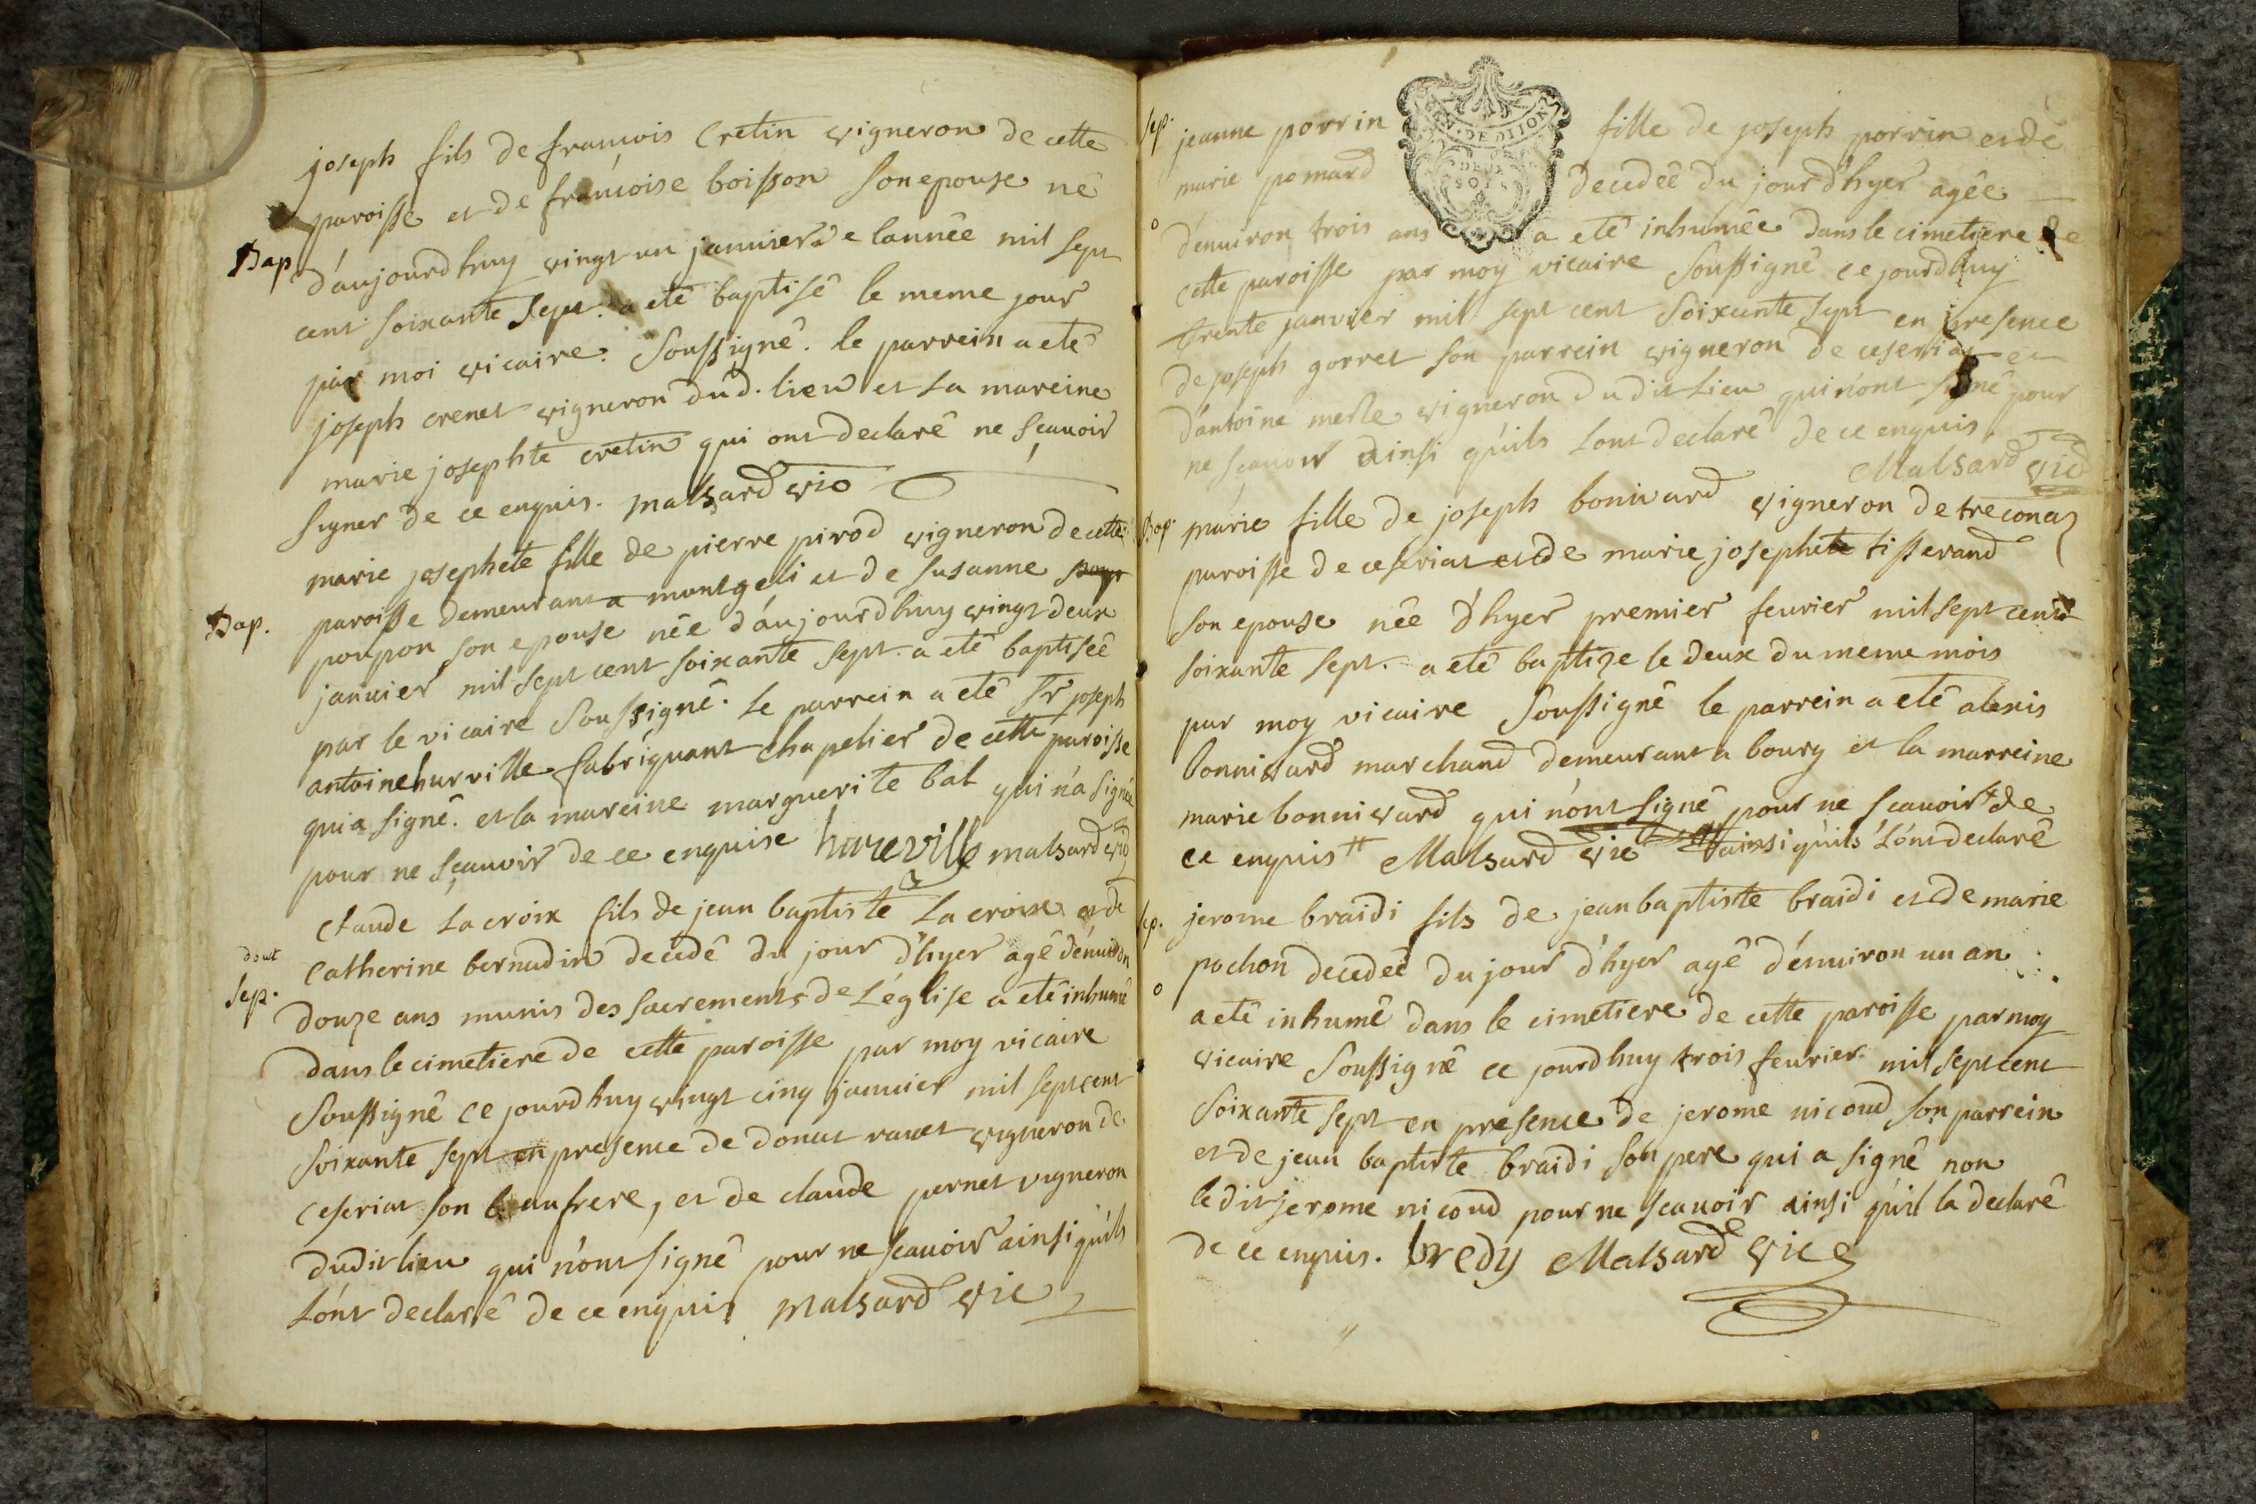 joseph fils de francois Cretin vigneron de cette
paroisse et de francoise boisson son epouse né
Bap
d'aujourdhuy vingt un janvier de lannée mil sept
cent soixante sept. a eté baptisé le meme jour
par moi vicaire. Soussigné. le parrein a eté
joseph crenet vigneron dud. lieu et la mareine
marie josephte cretin qui ont declaré ne scauoir
signer de ce enquis. malsard vic
marie josephete fille de pierre pirod vigneron de cette
Bap.
paroisse demeurant a montgeli et de susanne
poupon son epouse née d'aujourdhuy vingt deux
januier mil sept cent soixante sept. a eté baptisée
par le vicaire Soussigné. le parrein a eté Sr joseph
antoine hurville fabriquant chapelier de cette paroisse
qui a signé. et la mareine marguerite bal qui n'a signée
pour ne sçauoir de ce enquise hureville malsard vic
Claude Lacroix fils de jean baptiste Lacroix et de
Catherine bernadin decedé du jour d'hyer agé d'enuiron
Sep.
douze ans munis des sacrements de L'église a eté inhumé
dans le cimetiere de cette paroisse par moy vicaire
Soussigné ce jourdhuy vingt cinq januier mil sept cent
soixante sept en presence de donat vigneron de
ceseriat son beaufrere, et de claude pernet vigneron
dudit lieu qui n'ont signé pour ne scauoir ainsi qu'ils
L'ont declaré de ce enquis malsard vic
GEN. DE DIJON
DEUX
SOLS
Sep.
jeanne porrin fille de joseph porrin et de
marie pomard decedée du jour d'hyer agée
d'enuiron trois ans a eté inhumée dans le cimetiere de
cette paroisse par moy vicaire Soussigné ce jourdhuy
trente janvier mil sept cent Soixante sept en presence
de joseph gorret son parrein vigneron de ceseriat et
d'antoine merle vigneron dudit Lieu qui n'ont signé pour
ne scauoir ainsi qu'ils Lont declaré de ce enquis.
Malsard vic
Bap.
marie fille de joseph boniuard vigneron de treconaz
paroisse de ceseriat et de marie josephete tisserand
son epouse née d'hyer premier feurier mil sept cent
soixante sept. a eté baptize le deux du meme mois
par moy vicaire Soussigné le parrein a eté alexis
bonnivard marchand demeurant a bourg et la marreine
marie bonnivard qui n'ont signé pour ne scauoir de
ce enquis Malsard vic ainsi qu'ils L'ont declaré
Sep.
jerome braidi fils de jean baptiste braidi et de marie
pochon decedeé du jour d'hyer agé d'enuiron un an
a eté inhumé dans le cimetiere de cette paroisse par moy
vicaire Soussigné ce jourdhuy trois feurier mil sept cent
Soixante sept en presence de jerome nicoud son parrein
et de jean baptiste braidi son pere qui a signé non
le dit jerome nicoud pour ne scauoir ainsi qu'il la declaré
de ce enquis. bredy Malsard vic